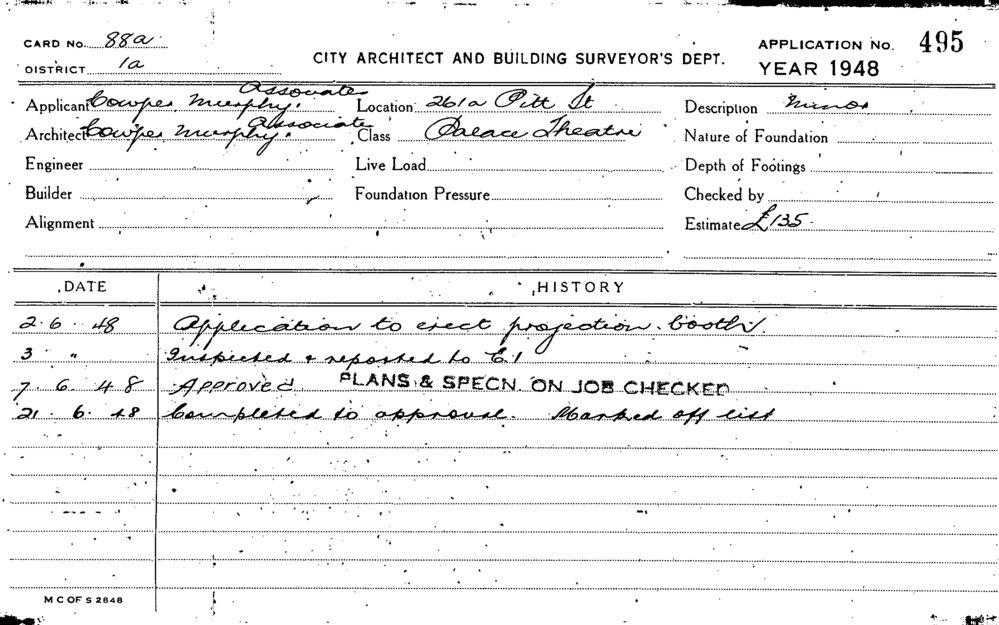 CARD No. 88a.
DISTRICT 1a
CITY ARCHITECT AND BUILDING SURVEYOR'S DEPT.
APPLICATION No. 495
YEAR 1948
Applicant Cowper Murphy. Associates
Location 261a Pitt St
Description Minor
Architect Cowper Murphy. Associate
Class Palace Theatre
Nature of Foundation
Engineer
Live Load
Depth of Footings
Builder
Foundation Pressure
Checked by
Alignment
Estimate £135.
DATE HISTORY
2.6.48 Application to erect projection booth
3 " Inspected & reported to C.I
7.6.48 Approved PLANS & SPECN. ON JOB CHECKED
21.6.48 Completed to approval. Marked off list
M C OF S 2848